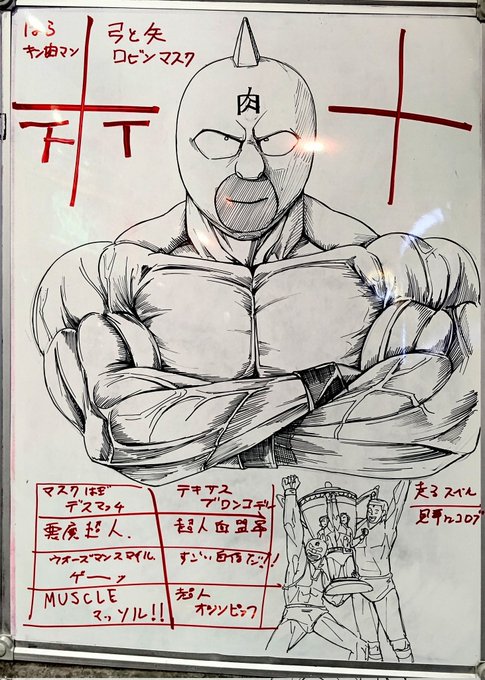 はら
キン肉マン
弓と矢
ロビンマスク
肉
マスクはぎ
デスマッチ
テキサス
ブロンコデル
悪魔超人.
超人血盟軍
ウォーズマンスマイル
ゲーッ
すごい自信だ!!
MUSCLE
マッソル!!
超人
オリンピック
走る スベル
見事にコロブ